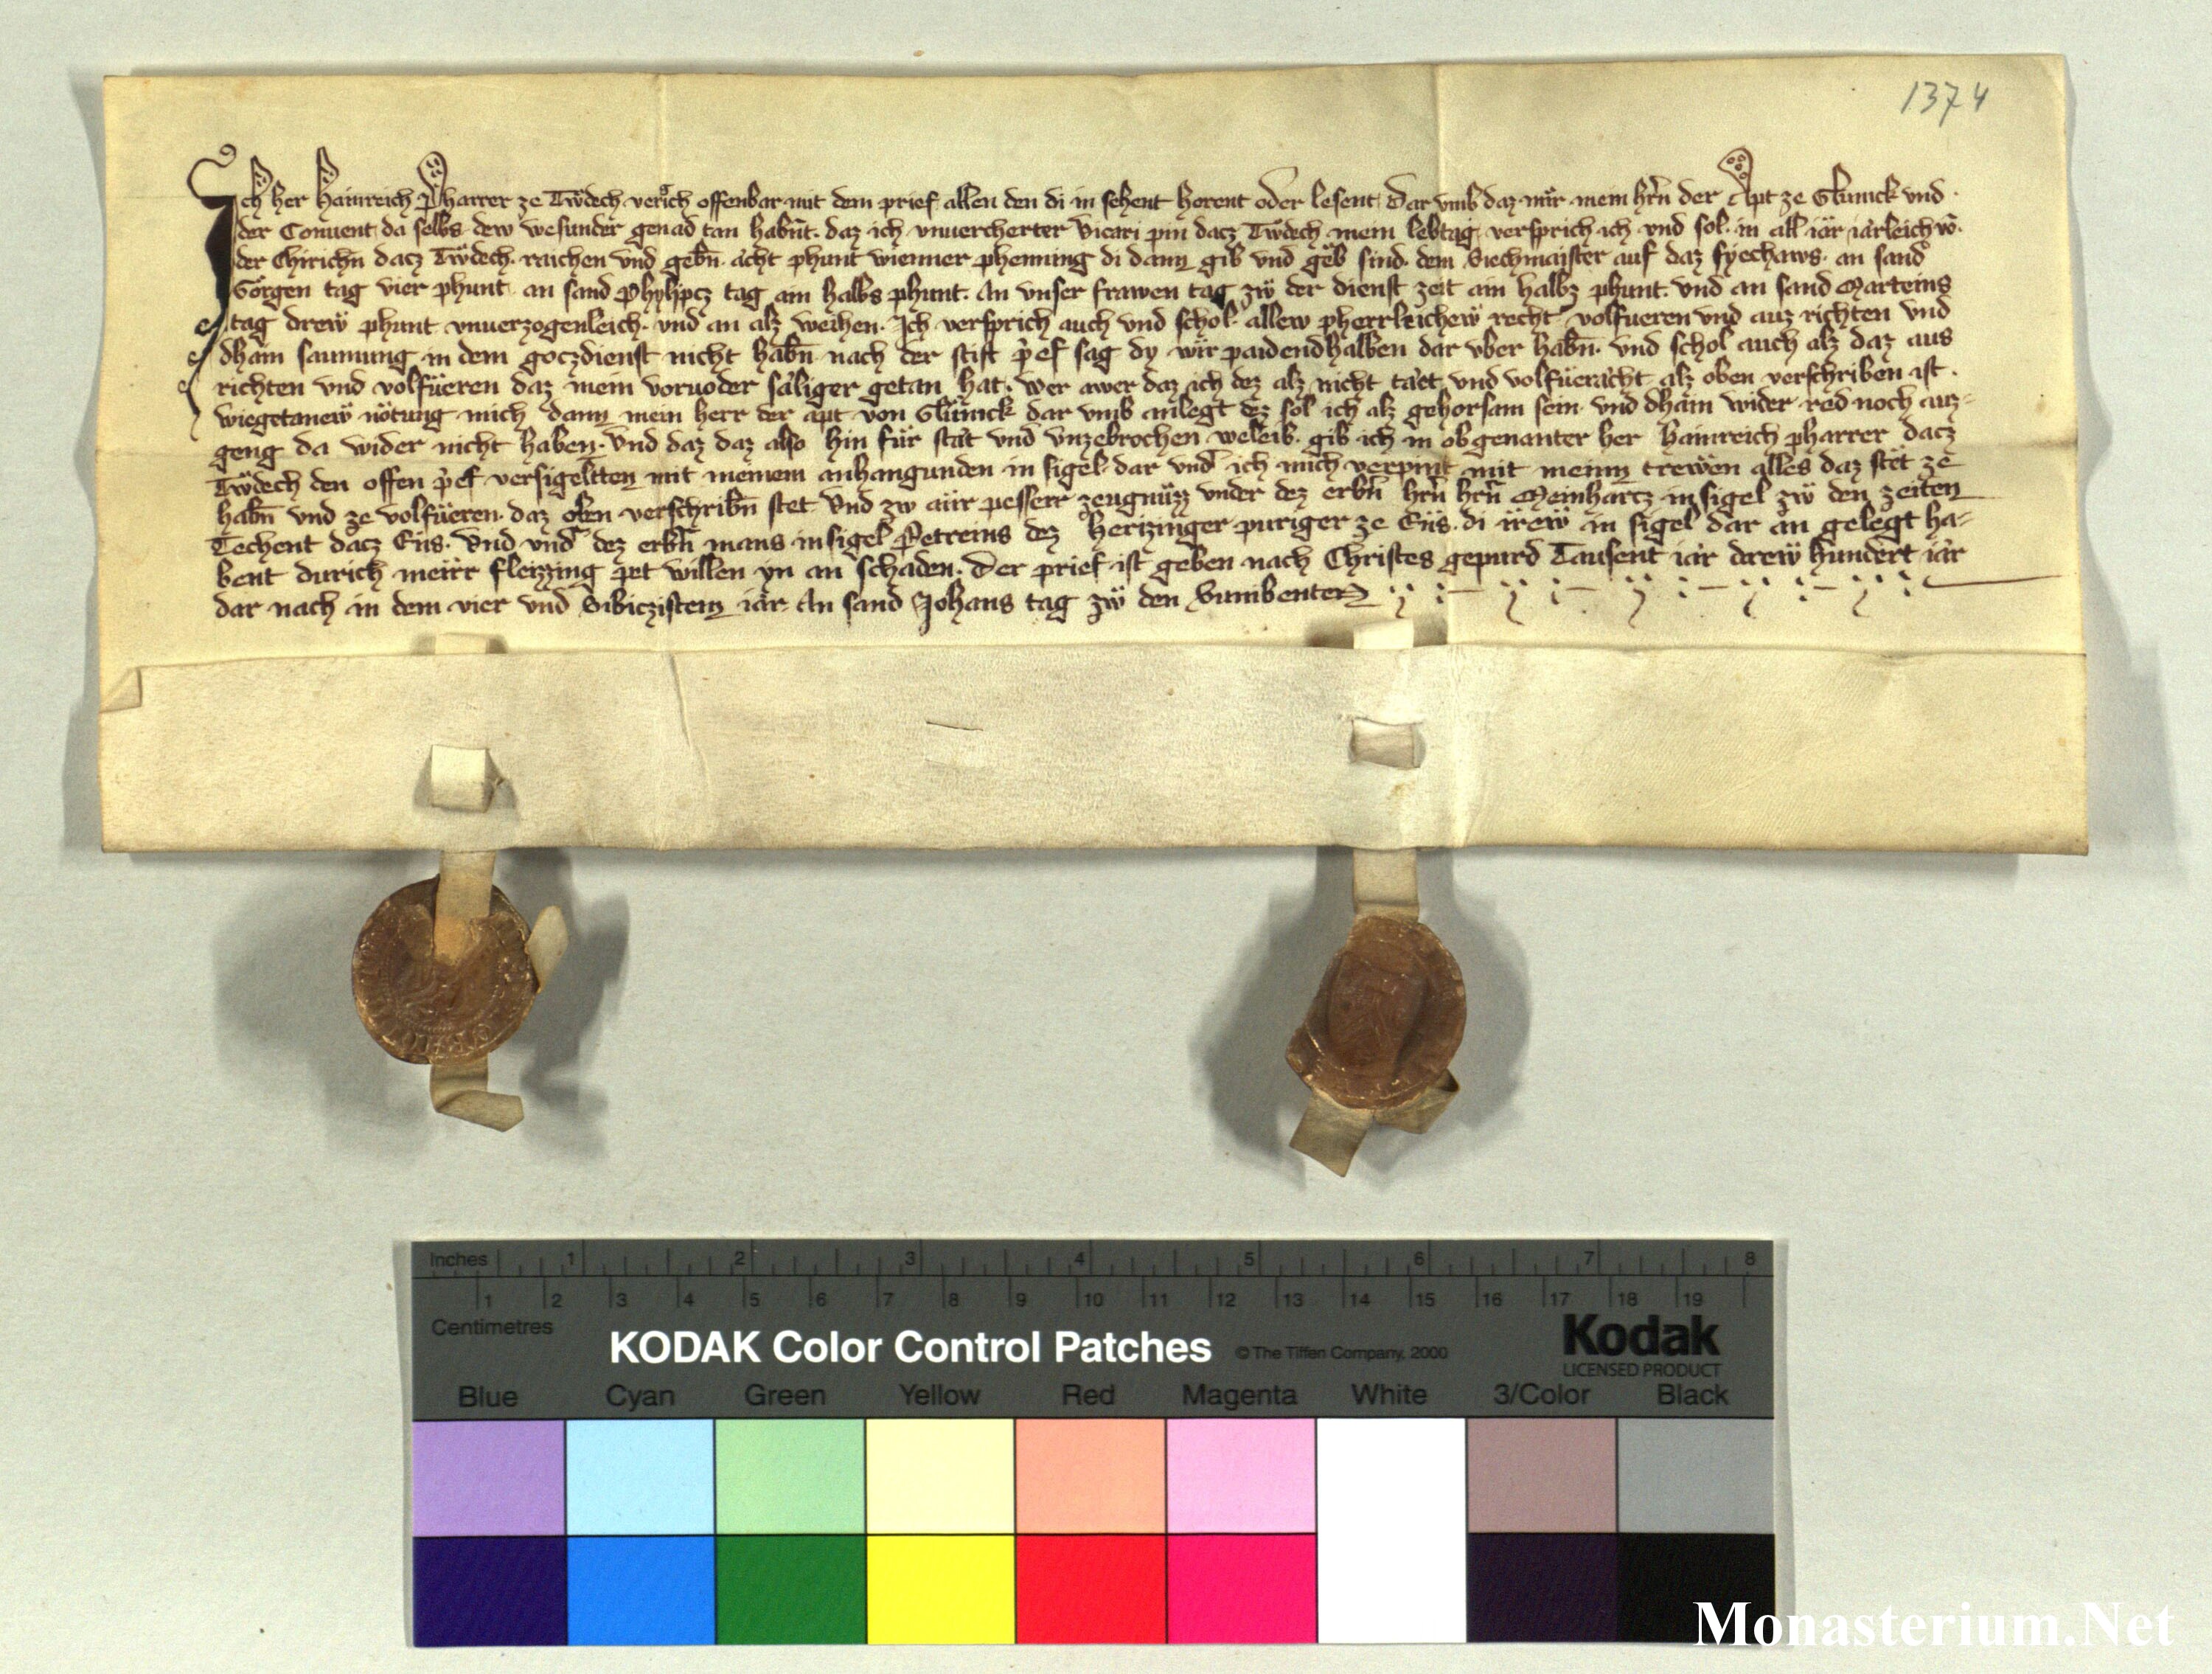 1374
Ich her Hainreich Pharrer ze Twͤdech vergich offenbar mit dem prief allen den di in sehent horent oder lesent dar vmb daz mir mein hrn̄ der Apt ze Glunick vnd
der Conuent da selbs dew wesunder genad tan habnt̄. daz ich vnuercherter Vicari pin dacz Twͤdech mein lebtag versprich ich vnd sol in all iar iärleich vō
der Chirichn̄ dacz Twͤdech. raichen vnd gebn̄ ächt phunt wienner phenning di dann gib vnd geb sind. dem Siechmaister auf daz syechaws. an sand
Görgen tag vier phunt an sand Phylipcz tag ain halbs phunt. An vnser frawen tag zw̎ der dienst zeit ain halbz phunt. vnd an sand Marteins
tag drew̎ phunt vnuerzogenleich. vnd an alz weihen. Ich versprich auch vnd schol allew pherrleichew̎ recht volfueren vnd auz richten vnd
dhain saumung in dem goczdienst nicht habn̄ nach der stift pref sag dy wir paidendhalben dar vber habn̄. vnd schol auch alz daz aus
richten vnd volfüeren daz mein voruoder säliger getan hat. wer awer daz ich dez alz nicht täet vnd volfüerächt alz oben verschriben ist.
wiegetanew̎ nötung mich dann mein herr der apt von Glunick dar vmb anlegt dez sol ich alz gehorsam sein vnd dhain wider red noch auz-
geng da wider nicht haben. Vnd daz daz also hin für stät vnd vnzebrochen weleib. gib ich in obgenanter her Hainreich pharrer dacz
Twͤdech den offen pref versigeltten mit meinem anhangunden insigel dar vnd̄ ich mich verpint mit meinn trewen alles daz stet ze
habn̄ vnd ze volfüeren. daz oben verschribn̄ stet Vnd zw air pesserr zeugnüzz vnder dez erbn̄ hrn̄ hrn̄ Meinhartz insigel zw̎ den zeiten
Techent dacz Ens. Vnd vnd̄ dez erbn̄ mans insigel Petreins dez Herizinger puriger ze Ens. di irew̎ in sigel dar an gelegt ha-
bent durich meirr fleizzing pet willen yn an schaden. Der prief ist geben nach Christes gepurd Tausent iar drew̎ hundert iar
dar nach in dem vier vnd Sibiczistem iar An sand Johans tag zw̎ den Sunibenten
Inches 1 2 3 4 5 6 7 8
1 2 3 4 5 6 7 8 9 10 11 12 13 14 15 16 17 18 19
Centimetres
KODAK Color Control Patches © The Tiffen Company, 2000 Kodak
LICENSED PRODUCT
Blue Cyan Green Yellow Red Magenta White 3/Color Black
Monasterium.Net